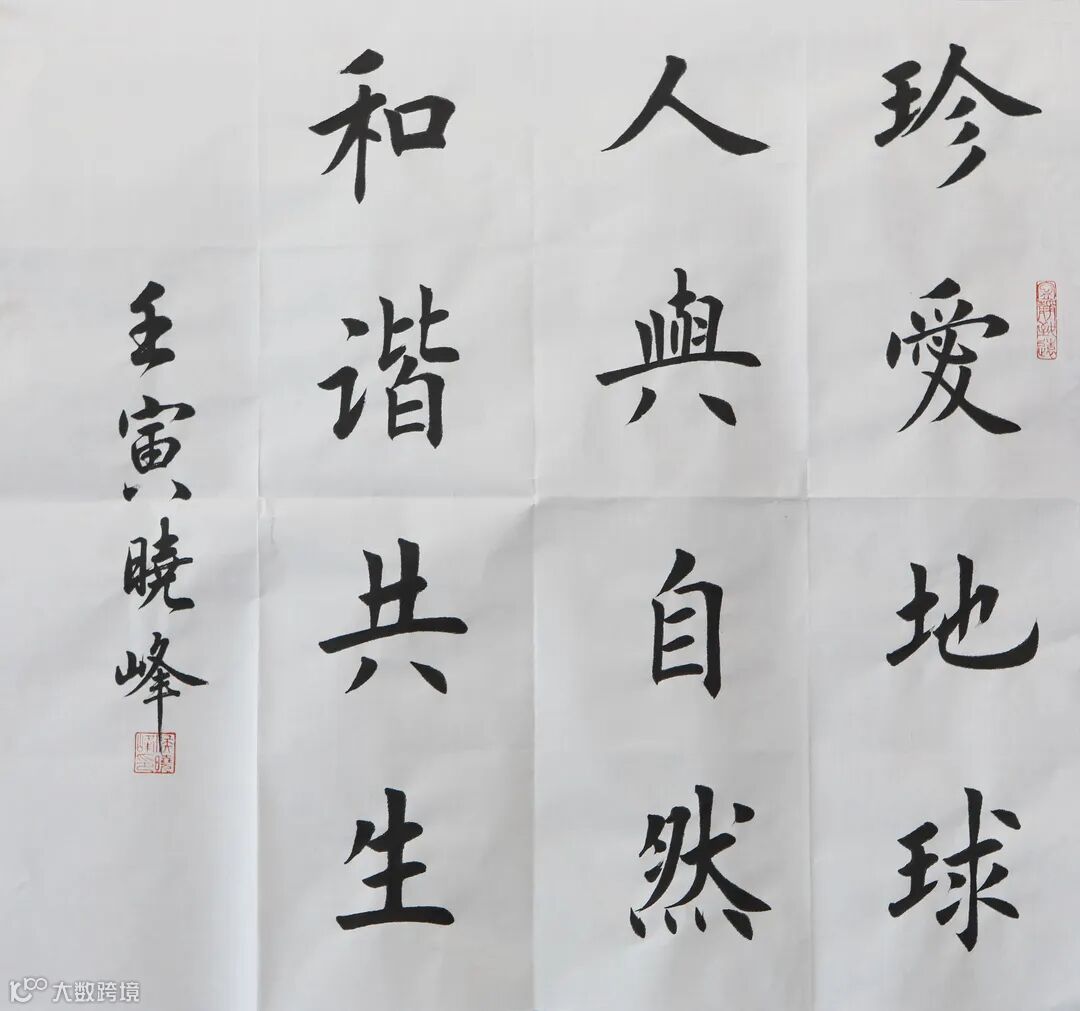 珍愛地球
人與自然
和谐共生
壬寅曉峰
大数跨境